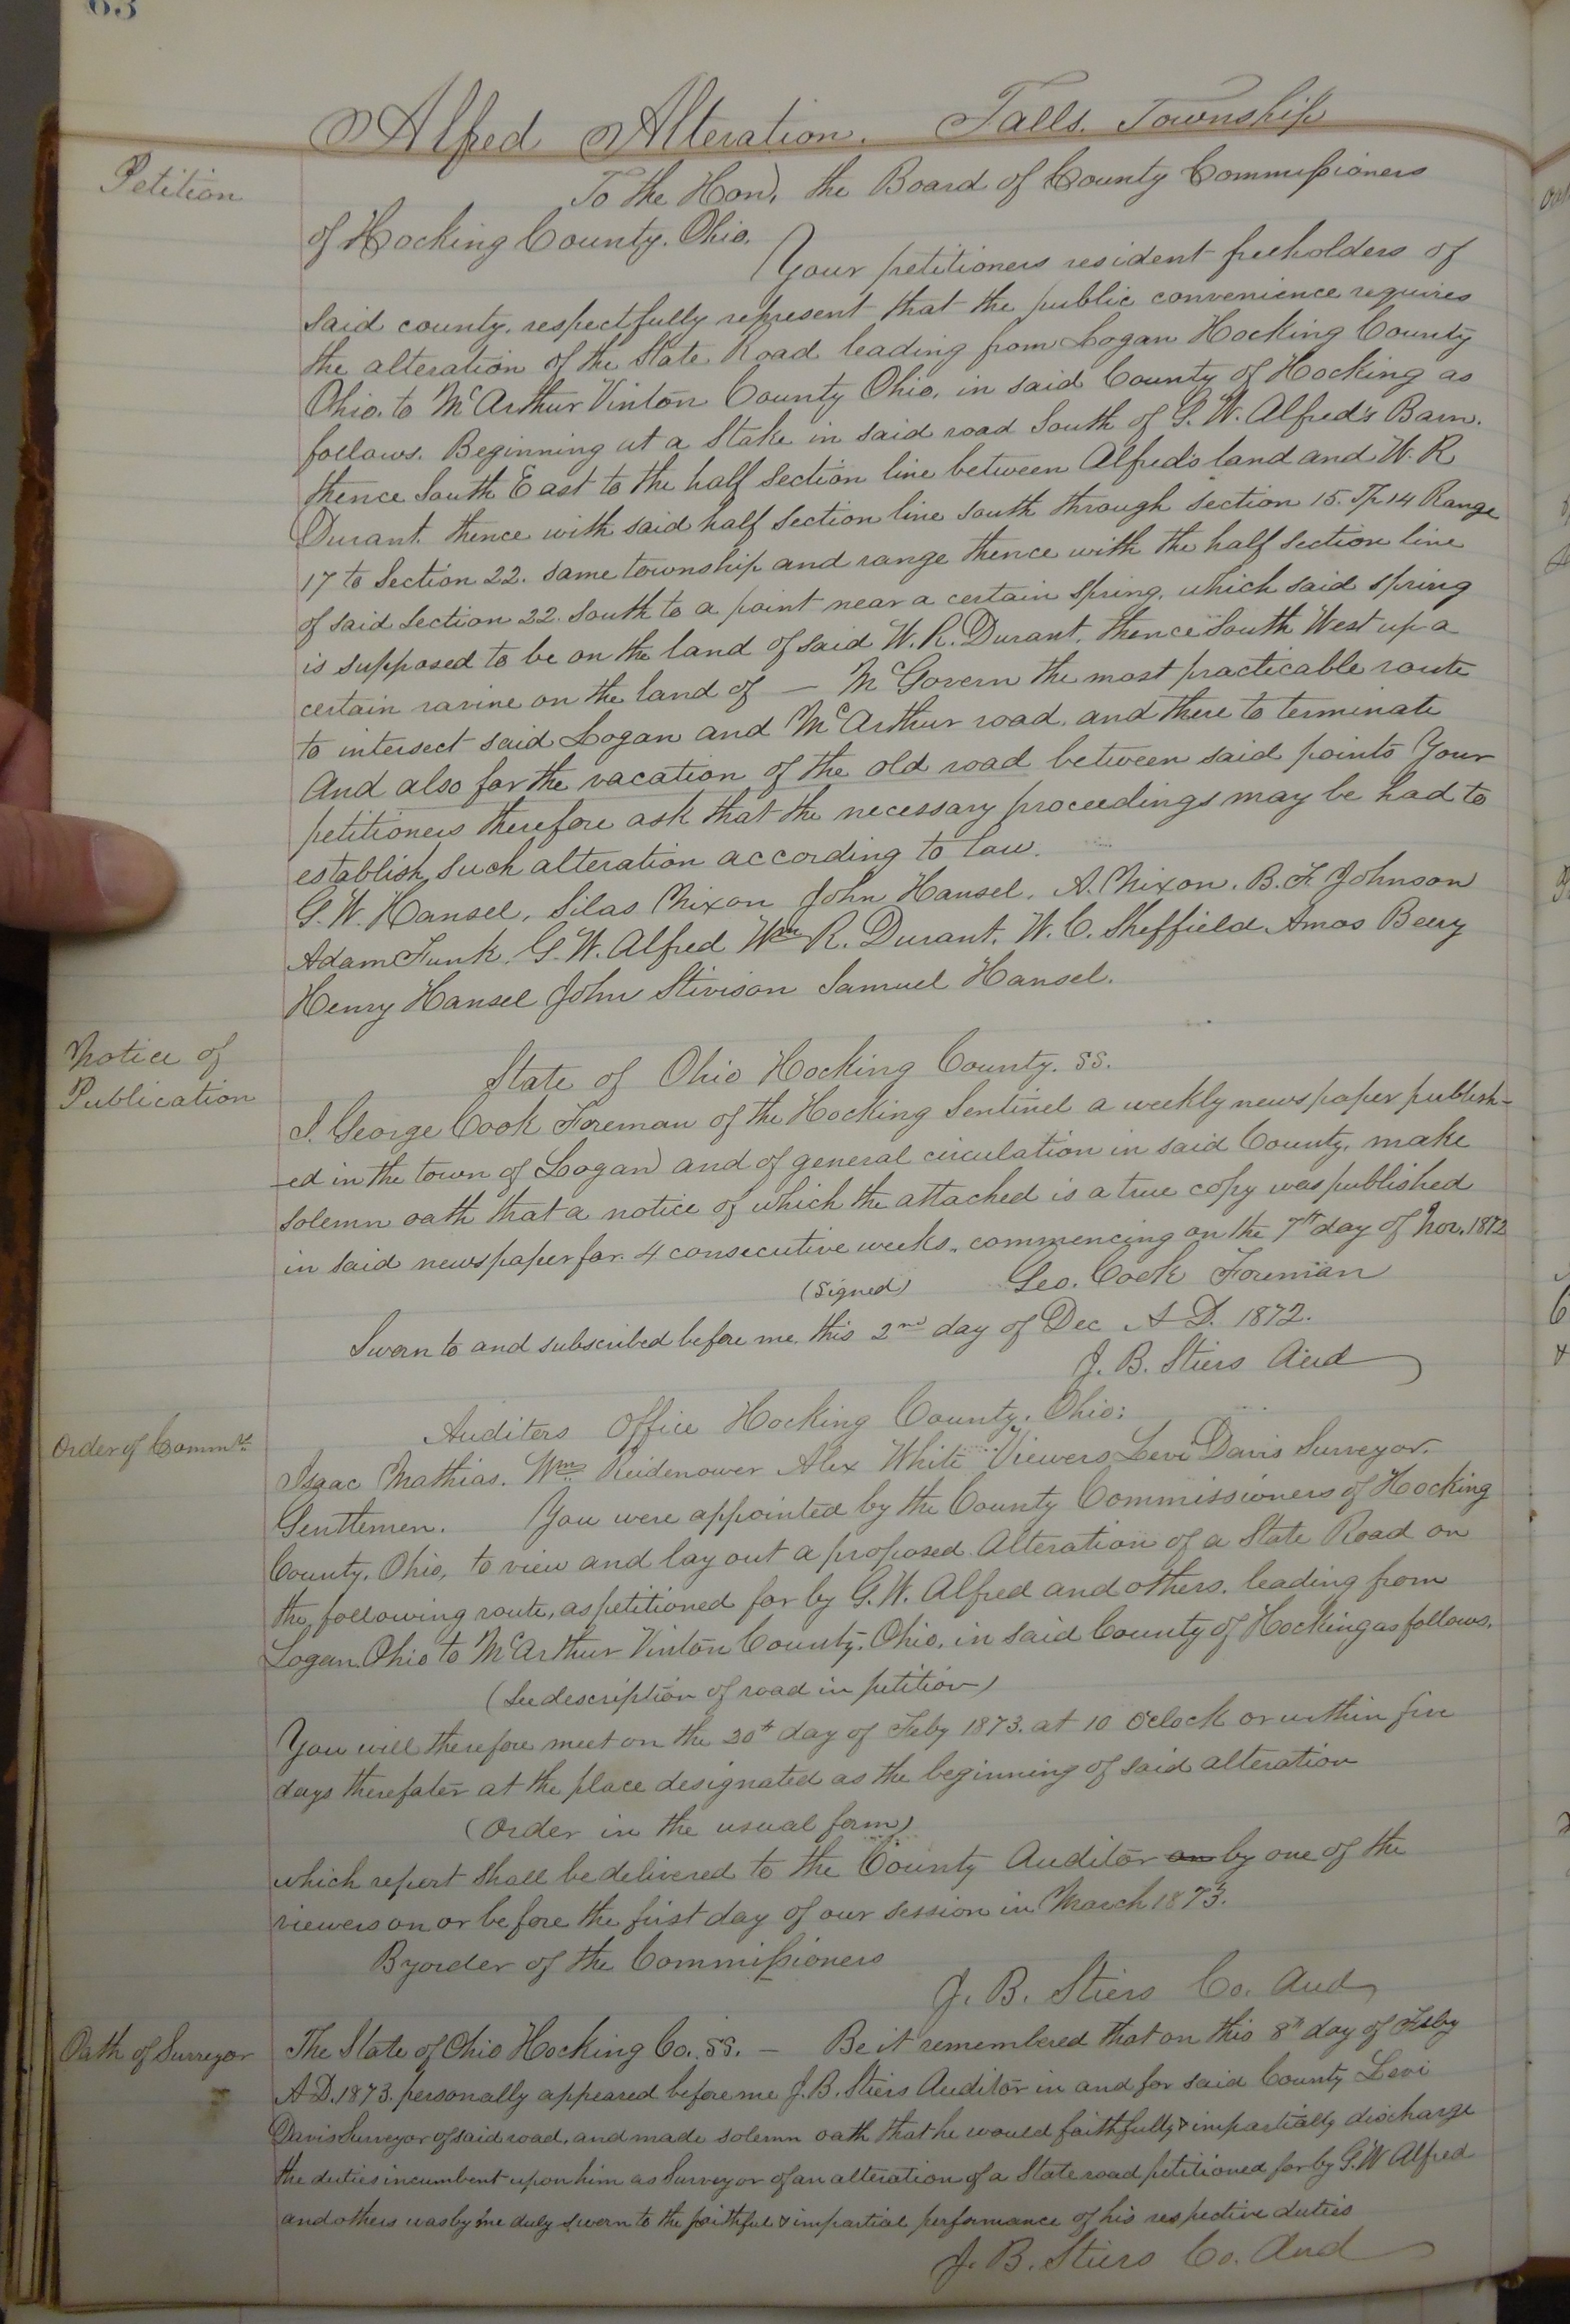 63
Alfred Alteration. Falls. Township
Petition
To the Hon. the Board of County Commissioners
of Hocking County. Ohio.
Your petitioners resident freeholders of
said county. respectfully represent that the public convenience requires
the alteration of the State Road leading from Logan Hocking County
Ohio. to McArthur Vinton County Ohio. in said County of Hocking as
follows. Beginning at a Stake in said road South of G. W. Alfred's Barn.
thence South East to the half section line between Alfred's land and W. R
Durant. thence with said half section line south through section 15. Tp 14 Range
17 to Section 22. same township and range thence with the half section line
of said section 22. south to a point near a certain spring, which said spring
is supposed to be on the land of said W. R. Durant. thence South West up a
certain ravine on the land of — McGovern the most practicable route
to intersect said Logan and McArthur road. and there to terminate
And also for the vacation of the old road between said points Your
petitioners therefore ask that the necessary proceedings may be had to
establish such alteration according to law.
G. W. Hansel, Silas Nixon John Hansel. A. Nixon. B. F. Johnson
Adam Funk. G. W. Alfred Wm R. Durant. W. C. Sheffield Amos Berry
Henry Hansel John Stivison Samuel Hansel.
Notice of
Publication
State of Ohio Hocking County. SS.
I. George Cook Foreman of the Hocking Sentinel a weekly newspaper publish-
-ed in the town of Logan and of general circulation in said County. make
solemn oath that a notice of which the attached is a true copy was published
in said newspaper for. 4 consecutive weeks. commencing on the 7th day of Nov. 1872
(Signed) Geo. Cook Foreman
Sworn to and subscribed before me. this 2nd day of Dec A D. 1872.
J. B. Stiers Aud
Order of Commrs
Auditors Office Hocking County. Ohio:
Isaac Mathias. Wm Reidenower Alex White Viewers Levi Davis Surveyor.
Gentlemen. You were appointed by the County Commissioners of Hocking
County. Ohio, to view and lay out a proposed Alteration of a State Road on
the following route, as petitioned for by G. W. Alfred and others. leading from
Logan. Ohio to McArthur Vinton County. Ohio. in said County of Hocking as follows.
(See description of road in petition)
You will therefore meet on the 20th day of Feby 1873. at 10 O'clock or within five
days therefater at the place designated as the beginning of said alteration
(Order in the usual form)
which report shall be delivered to the County Auditor on by one of the
viewers on or before the first day of our session in March 1873.
By order of the Commissioners
J. B. Stiers Co. Aud
Oath of Surveyor
The State of Ohio Hocking Co. SS. — Be it remembered that on this 8th day of Feby
A D. 1873. personally appeared before me J. B. Stiers Auditor in and for said County Levi
Davis Surveyor of said road. and made solemn oath that he would faithfully & impartially discharge
the duties incumbent upon him as Surveyor of an alteration of a State road petitioned for by G. W Alfred
and others was by me duly sworn to the faithful & impartial performance of his respective duties
J. B. Stiers Co. Aud